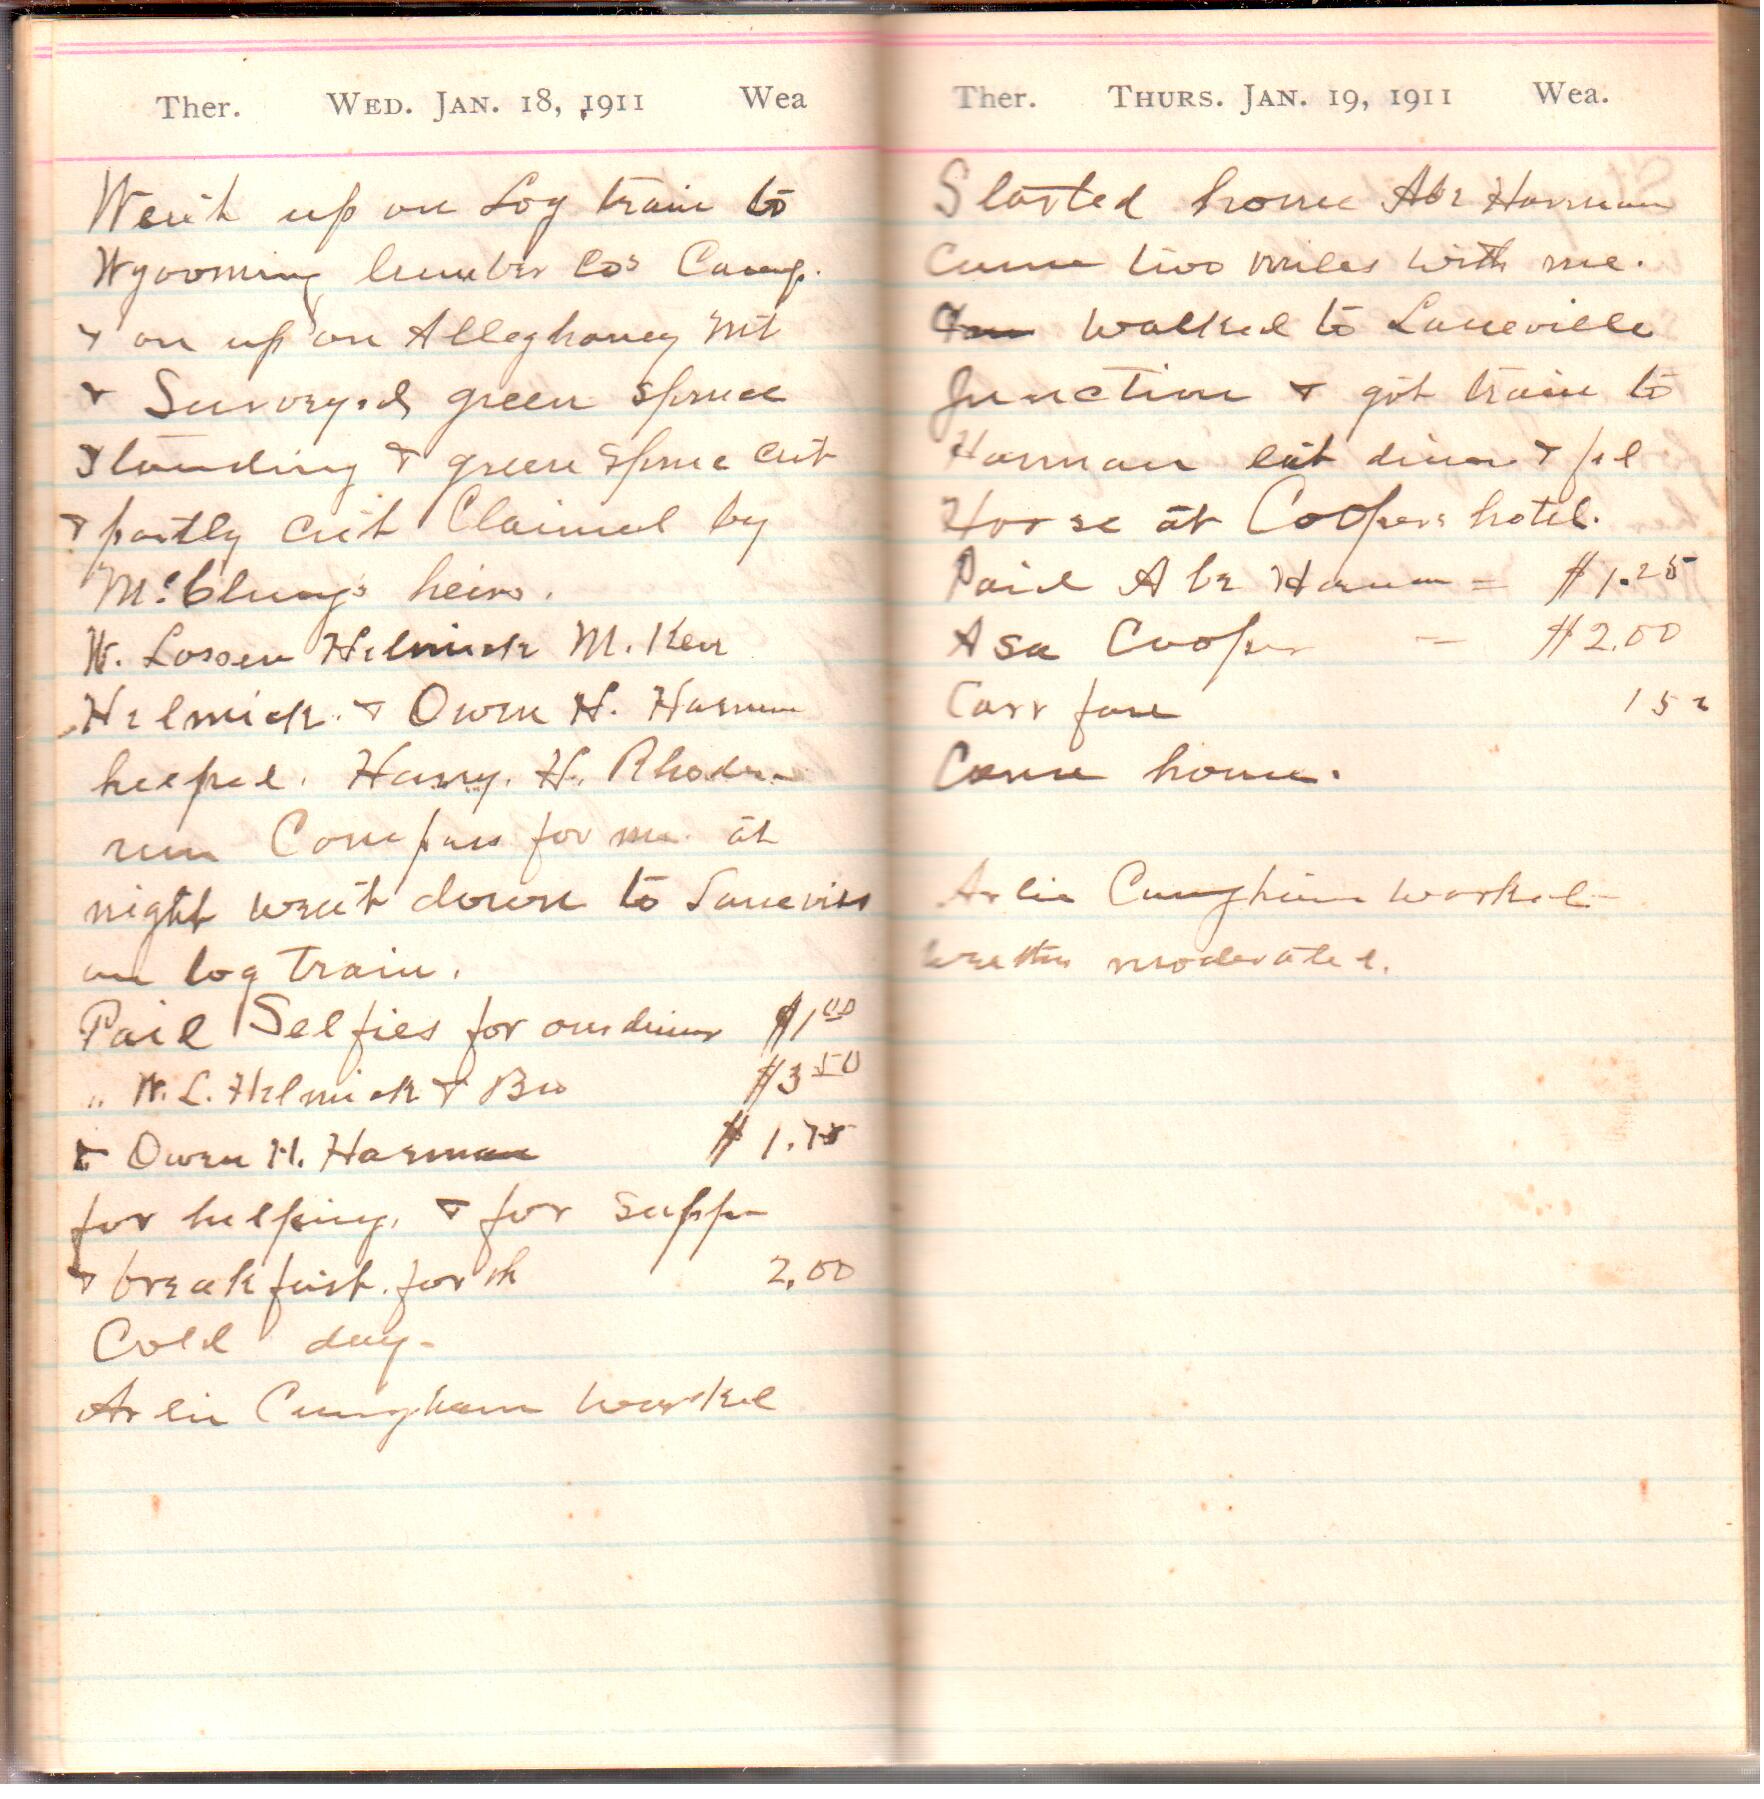 Ther. WED. JAN. 18, 1911 Wea
Went up on Log train to
Wyooming lumber Cos Camp.
& on up on Alleghaney Mt
& Surveyed green spruce
Standing & green spruce cut
& partly cut Claimed by
McClung's heirs.
W. Losson Helmick M. Kerr
Helmick. & Owen H. Harman
helped. Harry. H. Rhodes
run Compass for me. at
night went down to Laneville
on log train.
Paid Selfies for our diner $1 00
" W. L. Helmick & Bro $3 50
& Owen H. Harman $1.75
for helping. & for supper
& breakfast. for 2.00
Cold day.
Arlie Cungham worked
Ther. THURS. JAN. 19, 1911 Wea.
Started home Abe Harman
Came two miles with me.
walked to Laneville
Junction & got train to
Harman eat diner & fed
Horse at Coopers hotel.
Paid Abe Harman = $1.25
Asa Cooper – $2.00
Carr fare 15 c
Came home.
Arlie Cungham worked
weather moderated.